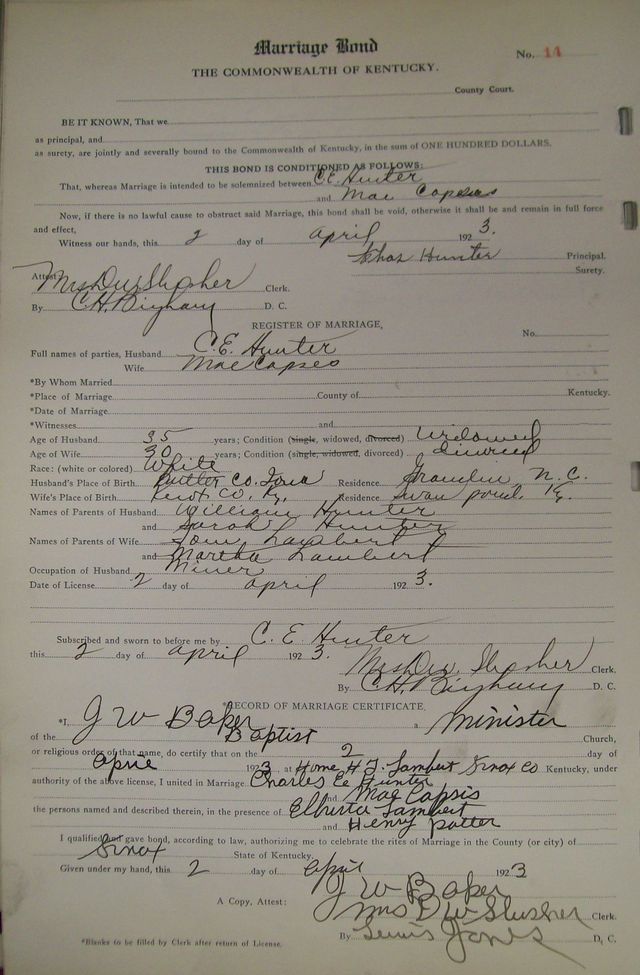 Marriage Bond
No. 14
THE COMMONWEALTH OF KENTUCKY.
County Court.
BE IT KNOWN, That we
as principal, and
as surety, are jointly and severally bound to the Commonwealth of Kentucky, in the sum of ONE HUNDRED DOLLARS.
THIS BOND IS CONDITIONED AS FOLLOWS:
That, whereas Marriage is intended to be solemnized between C.E. Hunter
and Mae Capses
Now, if there is no lawful cause to obstruct said Marriage, this bond shall be void, otherwise it shall be and remain in full force
and effect,
Witness our hands, this 2 day of April 1923.
Chas Hunter Principal.
Surety.
Attest: Mrs D W Slusher Clerk.
By C.H. D. C.
REGISTER OF MARRIAGE,
No.
Full names of parties, Husband C.E. Hunter
Wife Mae Capses
*By Whom Married
*Place of Marriage County of Kentucky.
*Date of Marriage
*Witnesses and
Age of Husband 35 years; Condition (single, widowed, divorced) widowed
Age of Wife 30 years; Condition (single, widowed, divorced) divorced
Race: (white or colored) White
Husband's Place of Birth Butler Co, Iowa Residence Grandin N.C.
Wife's Place of Birth Knox Co, Ky. Residence Swan pond, Ky.
Names of Parents of Husband William Hunter
and Sarah Hunter
Names of Parents of Wife Tom Lambert
and Martha Lambert
Occupation of Husband Miner
Date of License 2 day of April 1923.
Subscribed and sworn to before me by C. E. Hunter
this 2 day of April 1923.
Mrs D W Slusher Clerk.
By C.H. D. C.
*RECORD OF MARRIAGE CERTIFICATE.
*I, J W Baker a Minister
of the Baptist Church,
or religious order of that name, do certify that on the 2 day of
April 1923, at Home H J. Lambert Knox Co Kentucky, under
authority of the above license, I united in Marriage Charles E Hunter
and Mae Capsis
the persons named and described therein, in the presence of Elberta Lambert
and Henry Potter
I qualified and gave bond, according to law, authorizing me to celebrate the rites of Marriage in the County (or city) of
Knox State of Kentucky.
Given under my hand, this 2 day of April 1923
J W Baker
A Copy, Attest: Mrs D W Slusher Clerk.
By Jones D. C.
*Blanks to be filled by Clerk after return of License.